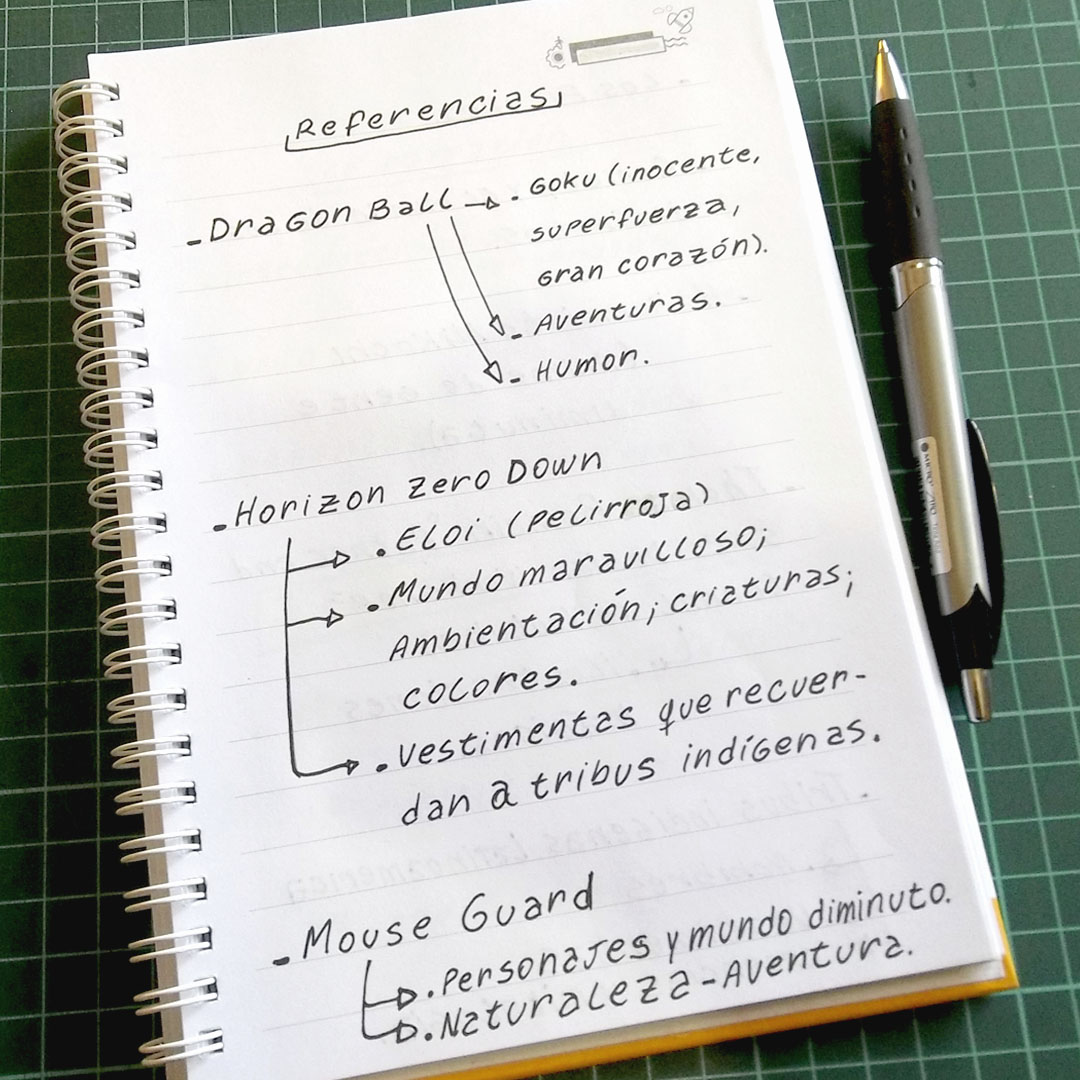 Referencias
- Dragon Ball → . Goku (inocente,
superfuerza,
Gran corazón).
- Aventuras.
- Humor.
- Horizon Zero Down
. Eloi (pelirroja)
. Mundo maravilloso;
Ambientación; criaturas;
colores.
. Vestimentas que recuer-
dan a tribus indígenas.
- Mouse Guard
. Personajes y mundo diminuto.
. Naturaleza - Aventura.